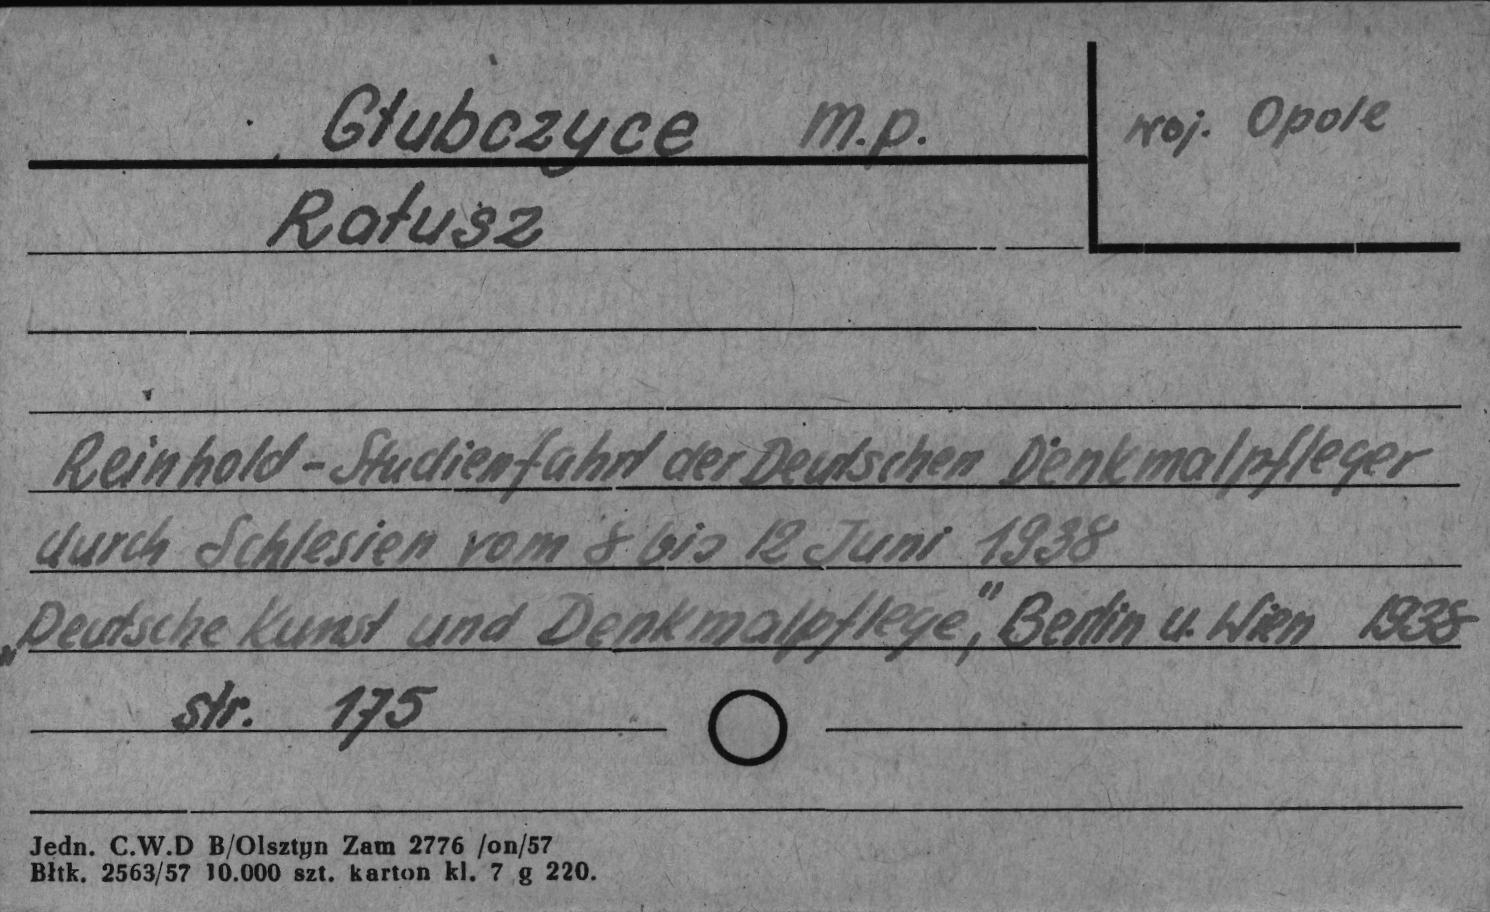 Głubczyce m.p. woj. Opole
Ratusz
Reinhold - Studienfahrt der Deutschen Denkmalpfleger
durch Schlesien vom 8 bis 12 Juni 1938
„Deutsche Kunst und Denkmalpflege", Berlin u. Wien 1938
str. 175
Jedn. C.W.D B/Olsztyn Zam 2776 /on/57
Błtk. 2563/57 10.000 szt. karton kl. 7 g 220.